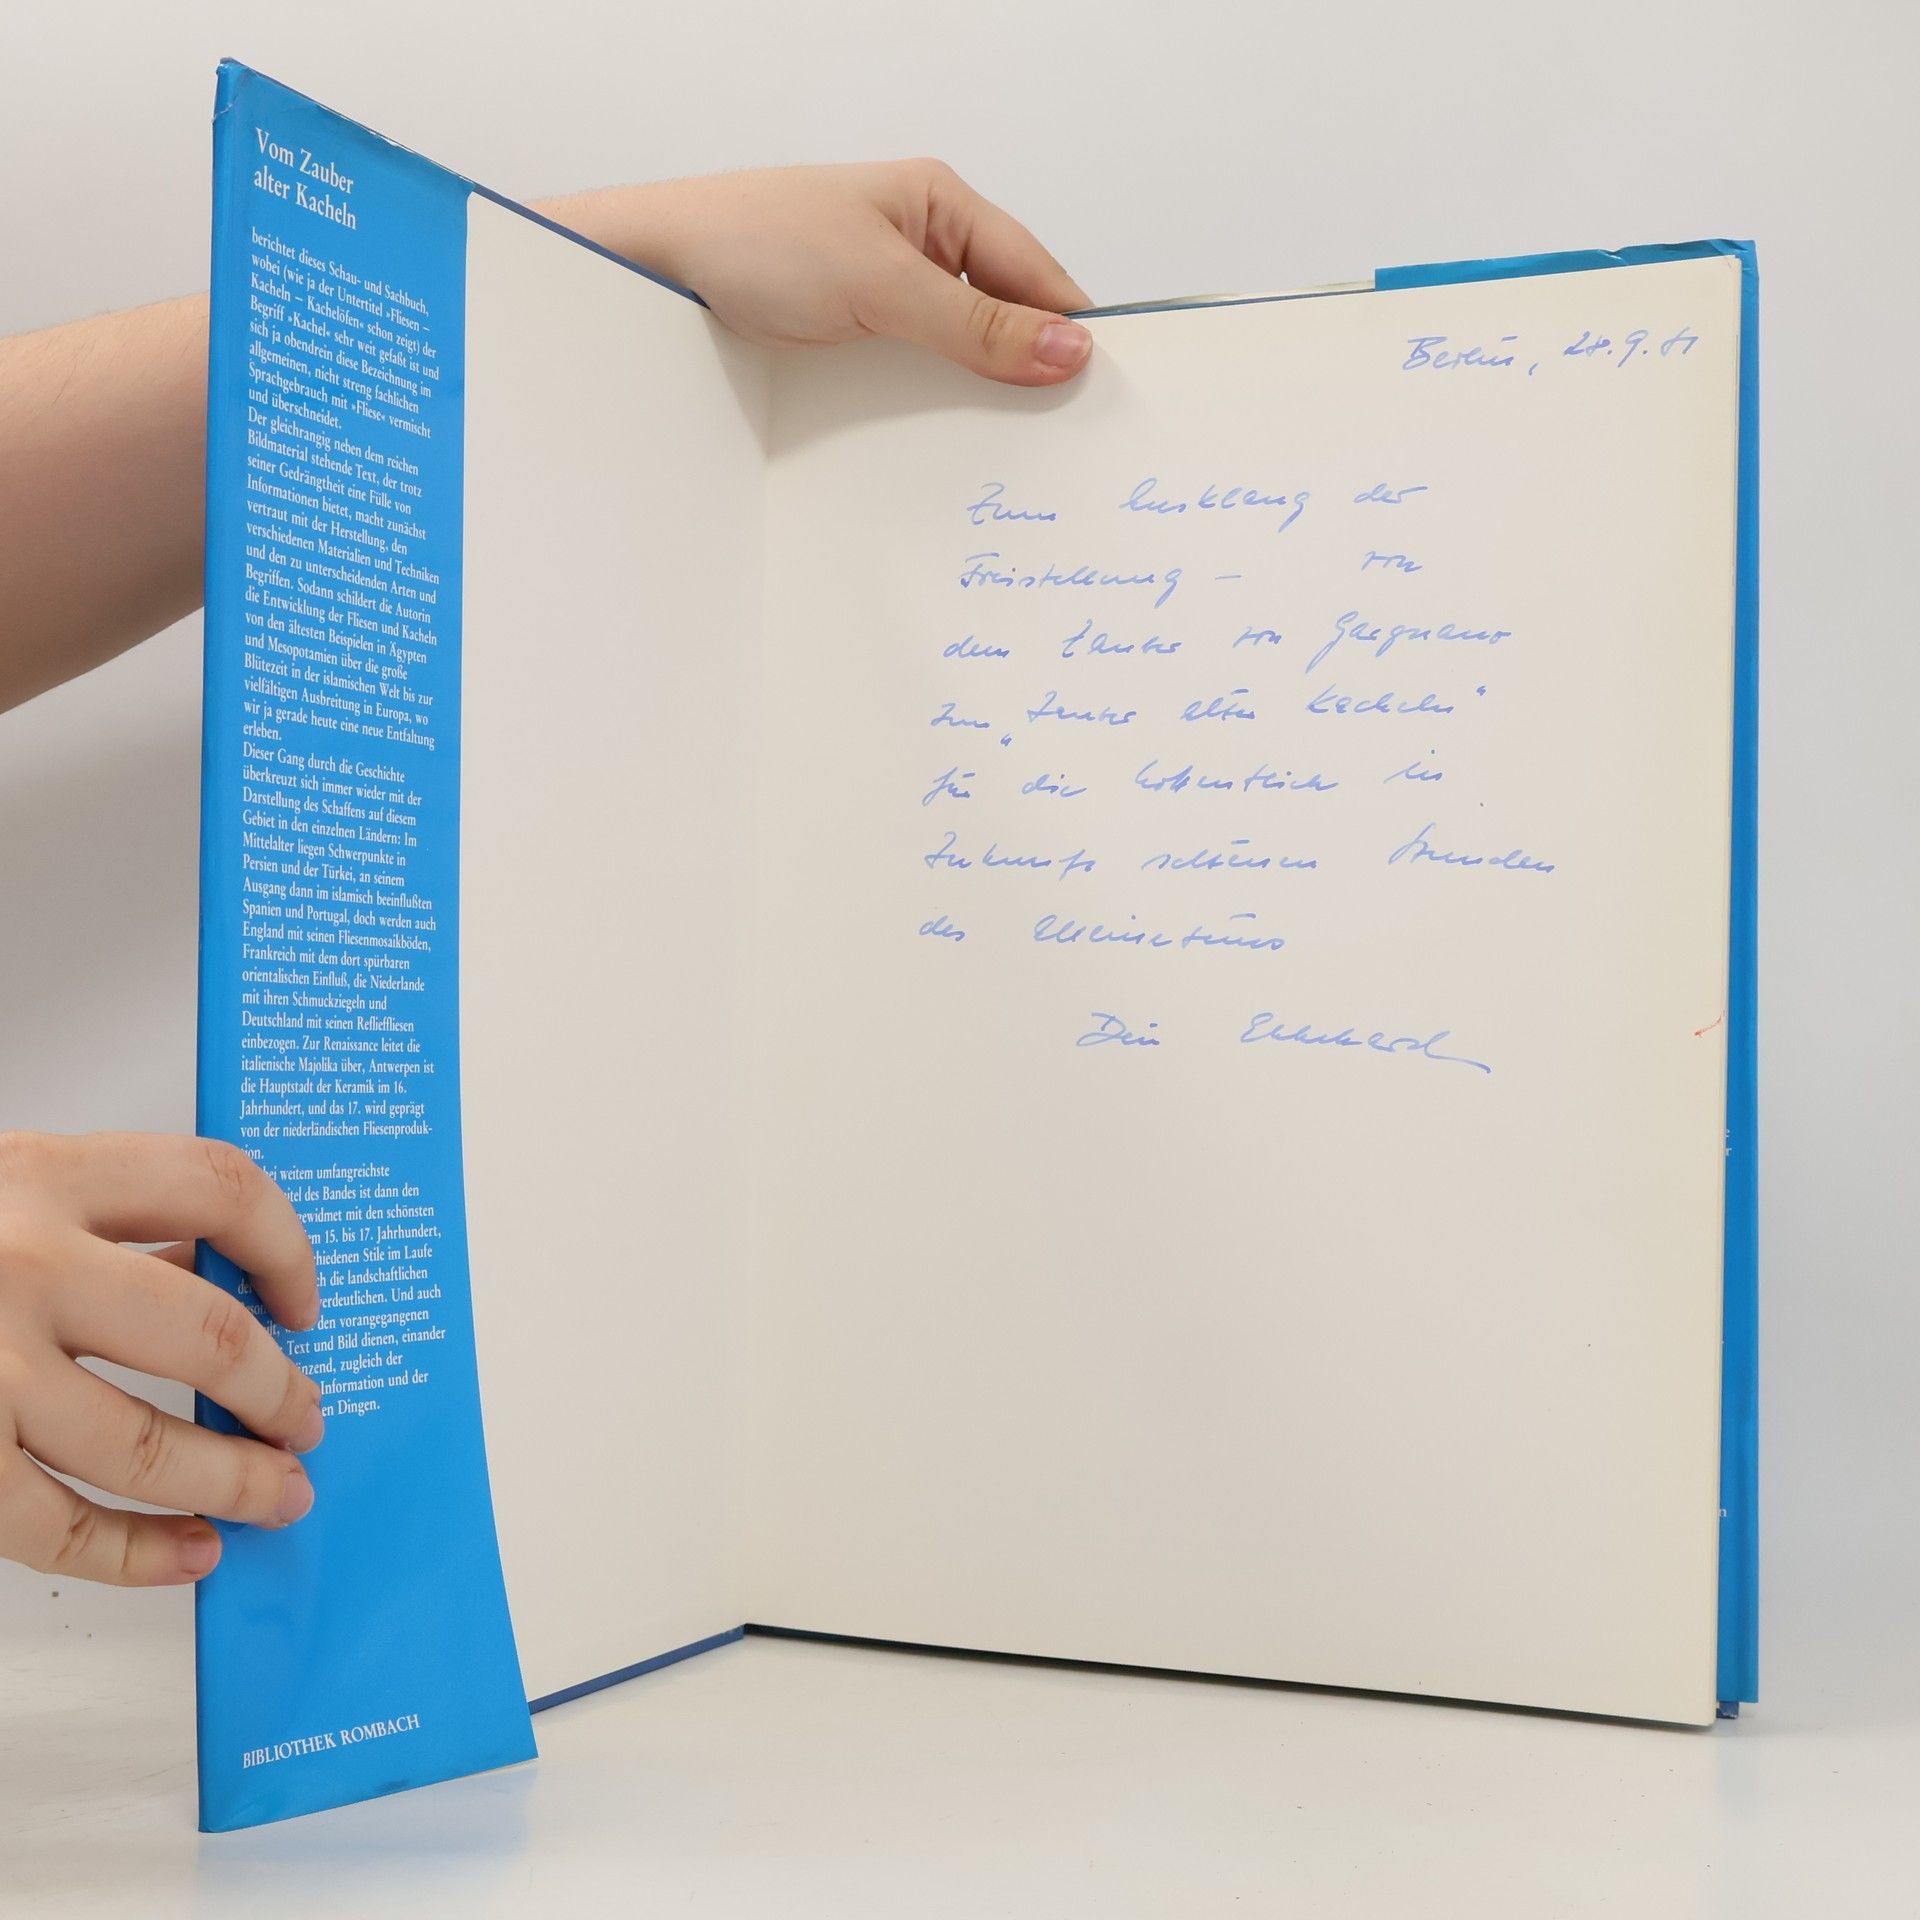 Vom Zauber
alter Kacheln
berichtet dieses Schau- und Sachbuch,
wobei (wie ja der Untertitel »Fliesen –
Kacheln – Kachelöfen« schon zeigt) der
Begriff »Kachel« sehr weit gefaßt ist und
sich ja obendrein diese Bezeichnung im
allgemeinen, nicht streng fachlichen
Sprachgebrauch mit »Fliese« vermischt
und überschneidet.
Der gleichrangig neben dem reichen
Bildmaterial stehende Text, der trotz
seiner Gedrängtheit eine Fülle von
Informationen bietet, macht zunächst
vertraut mit der Herstellung, den
verschiedenen Materialien und Techniken
und den zu unterscheidenden Arten und
Begriffen. Sodann schildert die Autorin
die Entwicklung der Fliesen und Kacheln
von den ältesten Beispielen in Ägypten
und Mesopotamien über die große
Blütezeit in der islamischen Welt bis zur
vielfältigen Ausbreitung in Europa, wo
wir ja gerade heute eine neue Entfaltung
erleben.
Dieser Gang durch die Geschichte
überkreuzt sich immer wieder mit der
Darstellung des Schaffens auf diesem
Gebiet in den einzelnen Ländern: Im
Mittelalter liegen Schwerpunkte in
Persien und der Türkei, an seinem
Ausgang dann im islamisch beeinflußten
Spanien und Portugal, doch werden auch
England mit seinen Fliesenmosaikböden,
Frankreich mit dem dort spürbaren
orientalischen Einfluß, die Niederlande
mit ihren Schmuckziegeln und
Deutschland mit seinen Reflieffliesen
einbezogen. Zur Renaissance leitet die
italienische Majolika über, Antwerpen ist
die Hauptstadt der Keramik im 16.
Jahrhundert, und das 17. wird geprägt
von der niederländischen Fliesenproduk-
tion.
bei weitem umfangreichste
des Bandes ist dann den
gewidmet mit den schönsten
15. bis 17. Jahrhundert,
Stile im Laufe
die landschaftlichen
verdeutlichen. Und auch
den vorangegangenen
Text und Bild dienen, einander
zugleich der
Information und der
Dingen.
BIBLIOTHEK ROMBACH
Berlin, 28.9.81
Zum Ausklang der
Freistellung – von
dem Zauber von Gargnano
zum „Zauber alter Kacheln“
für die hoffentlich in
Zukunft schönen Stunden
des Alleinseins
Dein Ekkehard